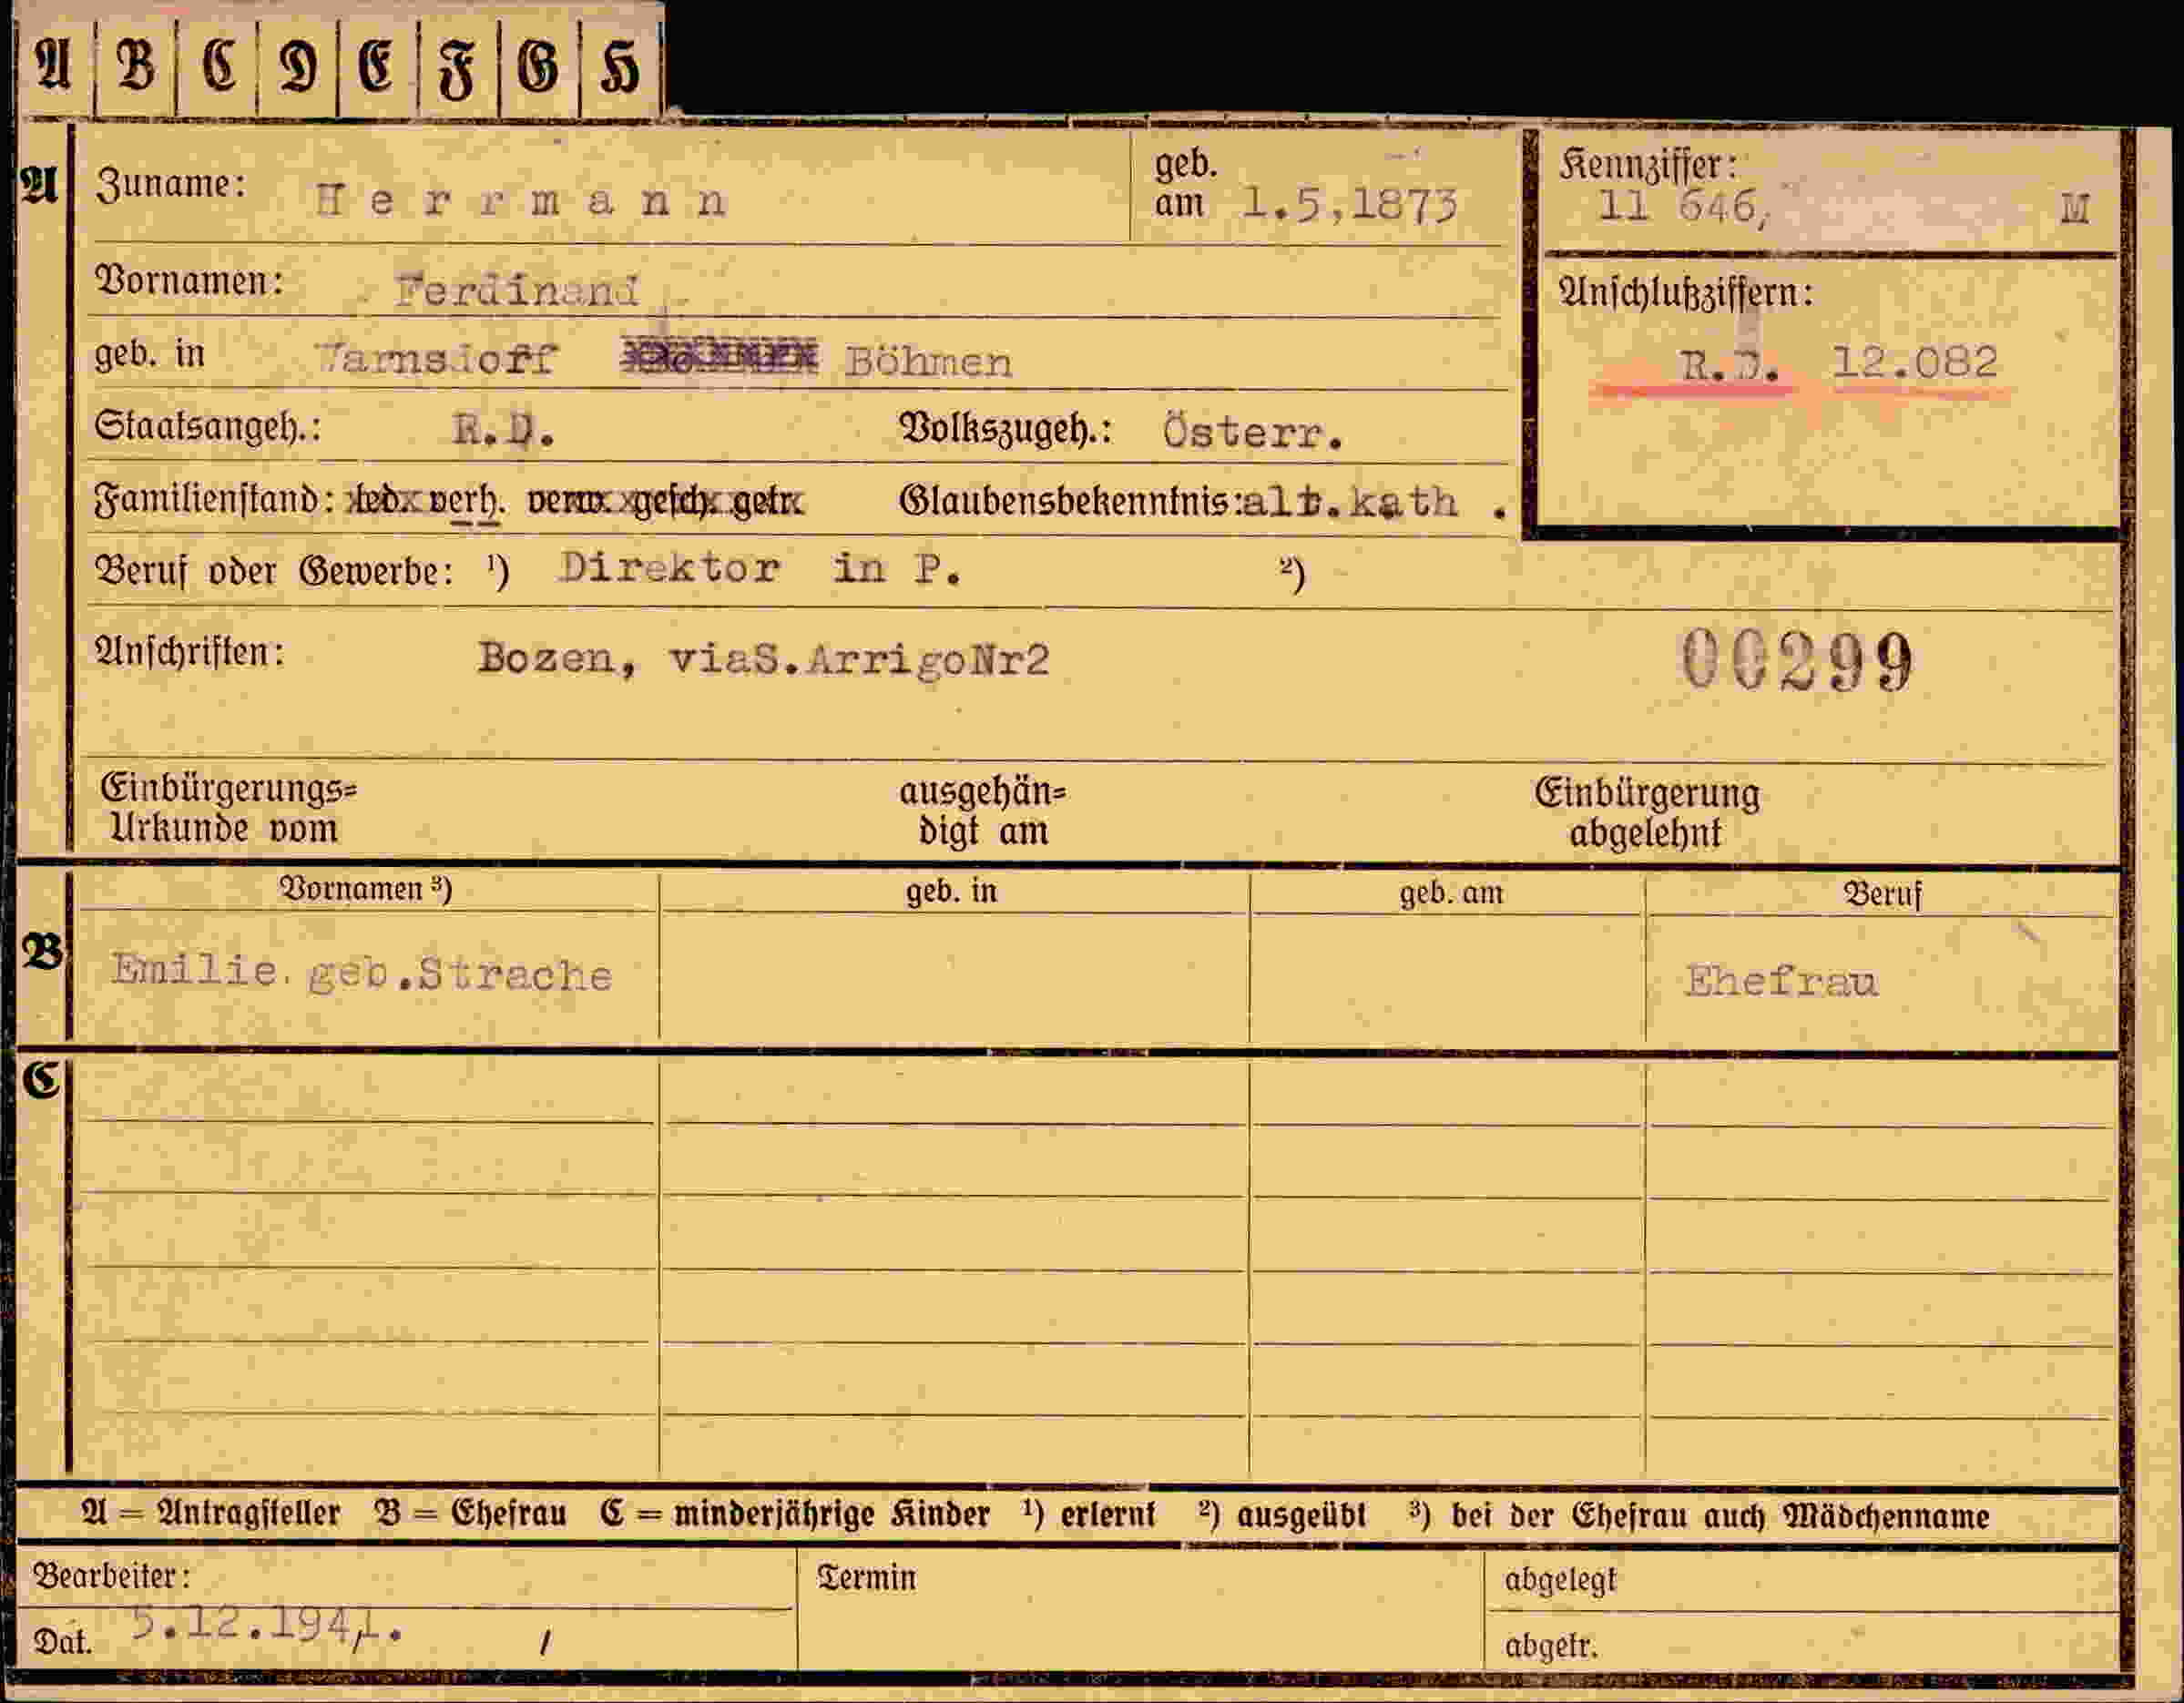 A B C D E F G H
A Zuname: Herrmann geb. am 1.5,1873 Kennziffer: 11 646, M
Vornamen: Ferdinand
Anschlußziffern:
R.D. 12.082
geb. in Warnsdorf Böhmen
Staatsangeh.: R.D. Volkszugeh.: Österr.
Familienstand: led. verh. verw. gesch. getr. Glaubensbekenntnis: alt.kath .
Beruf oder Gewerbe: ¹) Direktor in P. ²)
Anschriften: Bozen, viaS.ArrigoNr2 00299
Einbürgerungs= Urkunde vom
ausgehän= digt am
Einbürgerung abgelehnt
Vornamen ³) geb. in geb. am Beruf
B Emilie. geb.Strache Ehefrau
C
A = Antragsteller B = Ehefrau C = minderjährige Kinder ¹) erlernt ²) ausgeübt ³) bei der Ehefrau auch Mädchenname
Bearbeiter: Termin abgelegt
Dat. 5.12.1941. / abgetr.